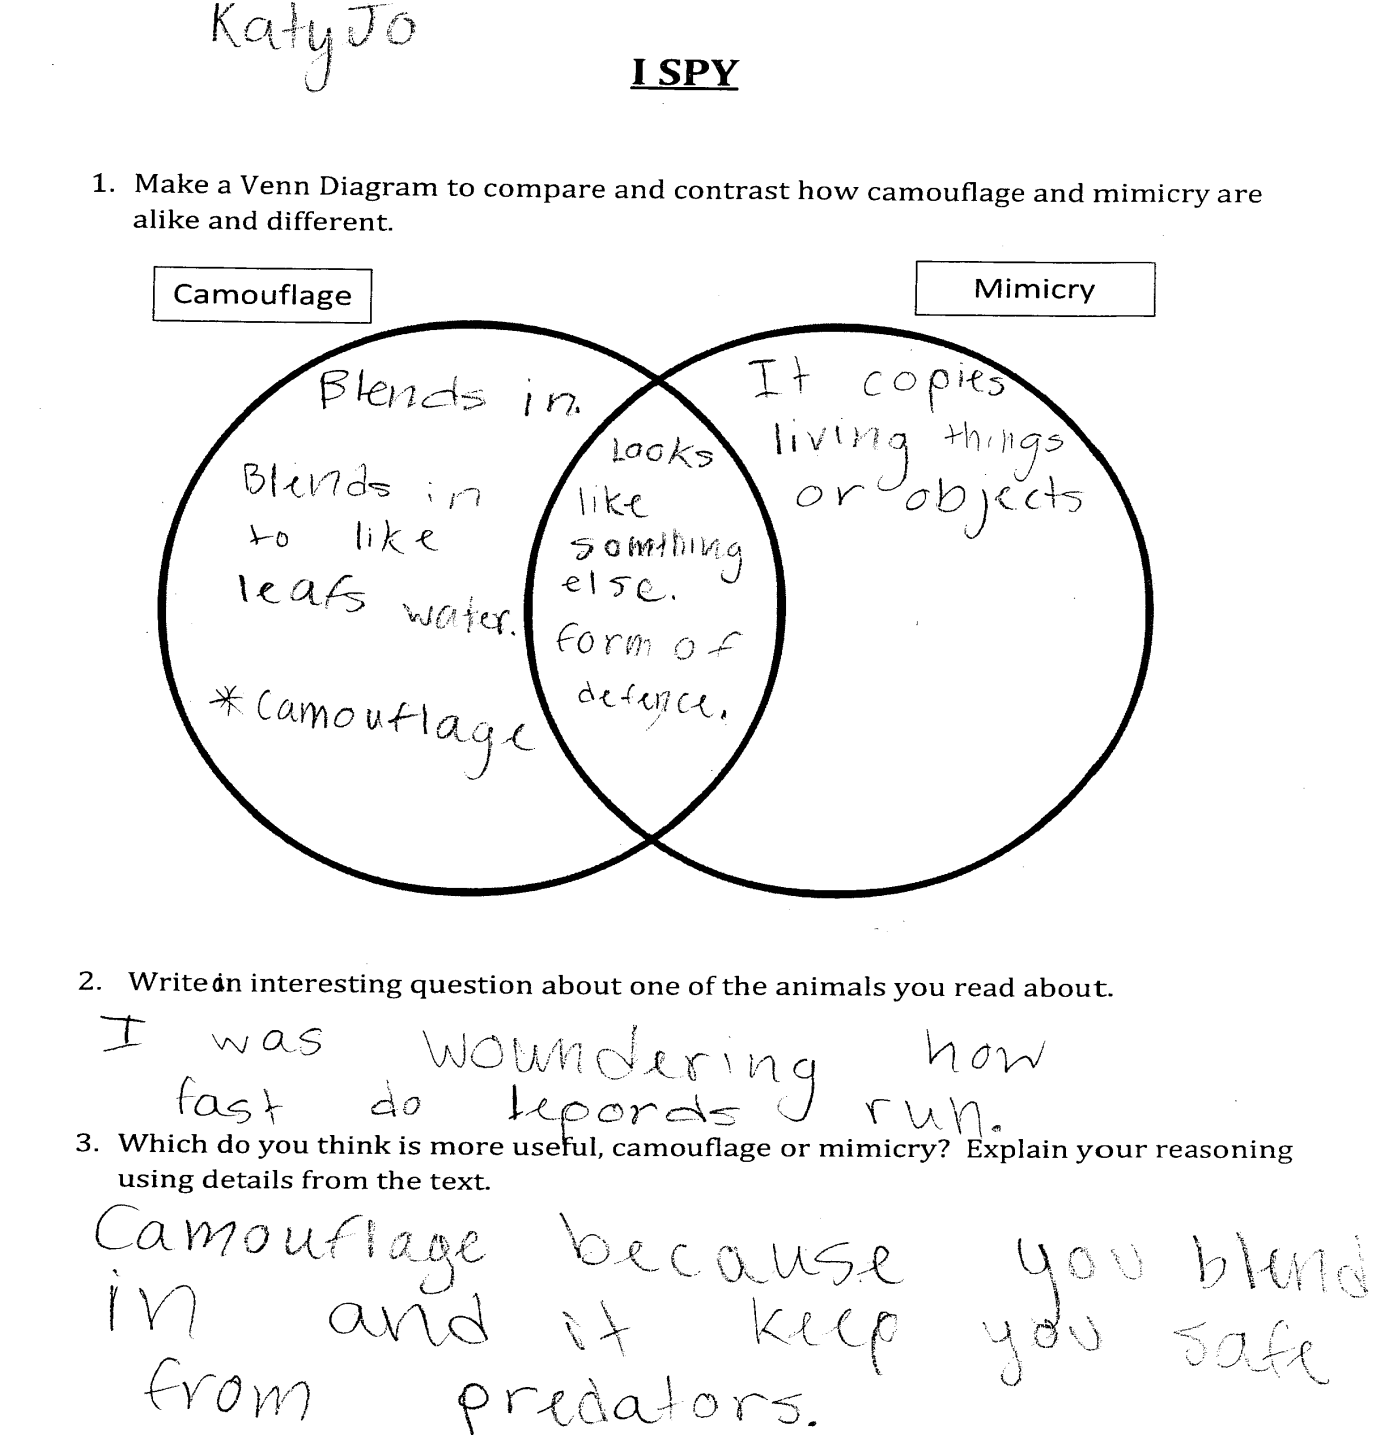 Katy Jo
I SPY
1. Make a Venn Diagram to compare and contrast how camouflage and mimicry are
alike and different.
Camouflage
Mimicry
Blends in.
Blends in
to like
leafs water.
*Camouflage
Looks
like
somthing
else.
form of
defence.
It copies
living things
or objects
2. Write an interesting question about one of the animals you read about.
I was woundering how
fast do lepords run.
3. Which do you think is more useful, camouflage or mimicry? Explain your reasoning
using details from the text.
Camouflage because you blend
in and it keep you safe
from predators.